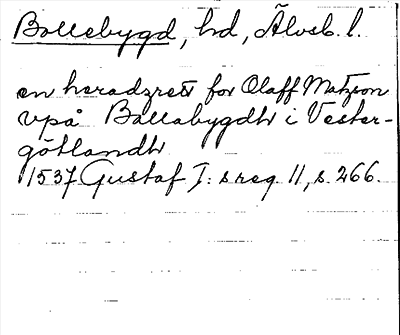 Bollebygd, hd, Älvsb. l.
en heradzrett for Olaff Matzson
vpå Bollabygdh i Vester-
götlandh
1537 Gustaf I: s reg. 11, s. 266.